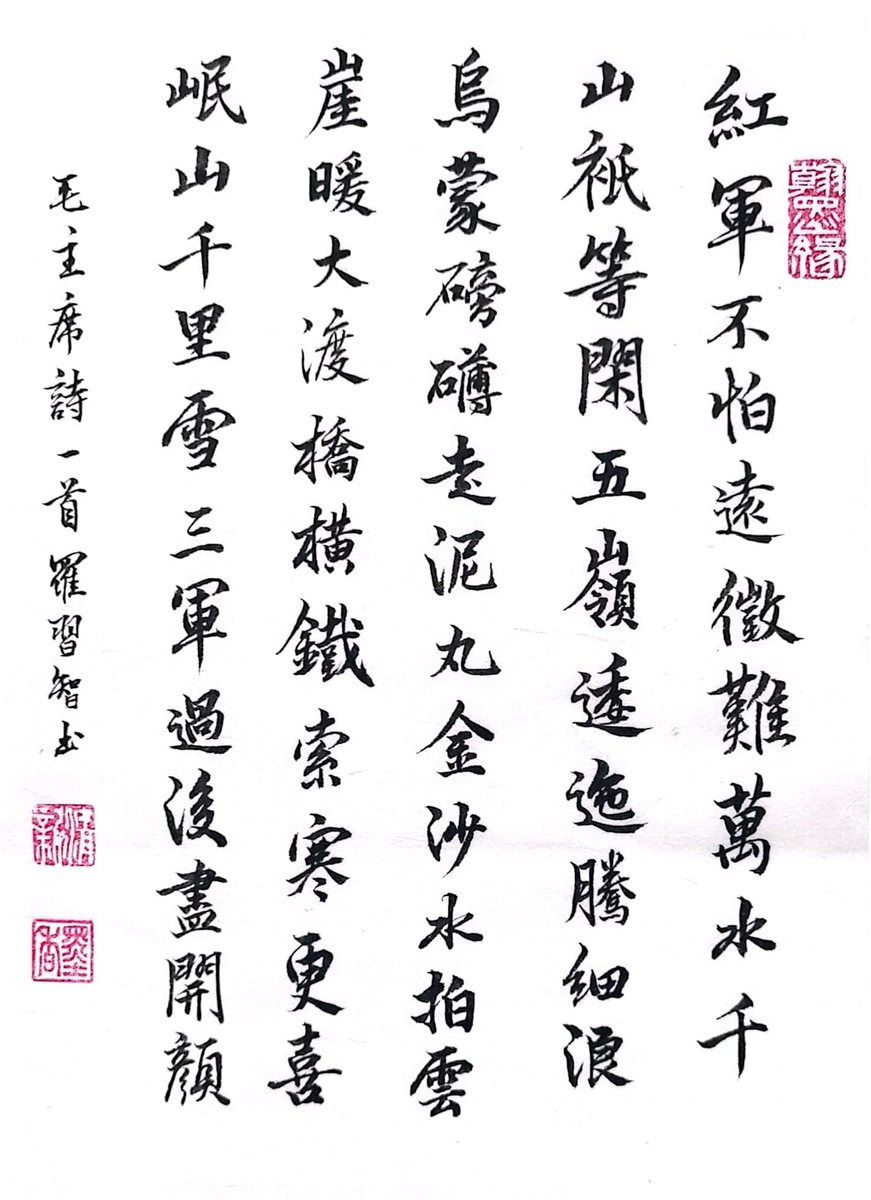 翰墨緣
紅軍不怕遠徵難萬水千
山衹等閑五嶺逶迤騰細浪
烏蒙磅礴走泥丸金沙水拍雲
崖暖大渡橋橫鐵索寒更喜
岷山千里雪三軍過後盡開顏
毛主席詩一首羅習智书
墨香